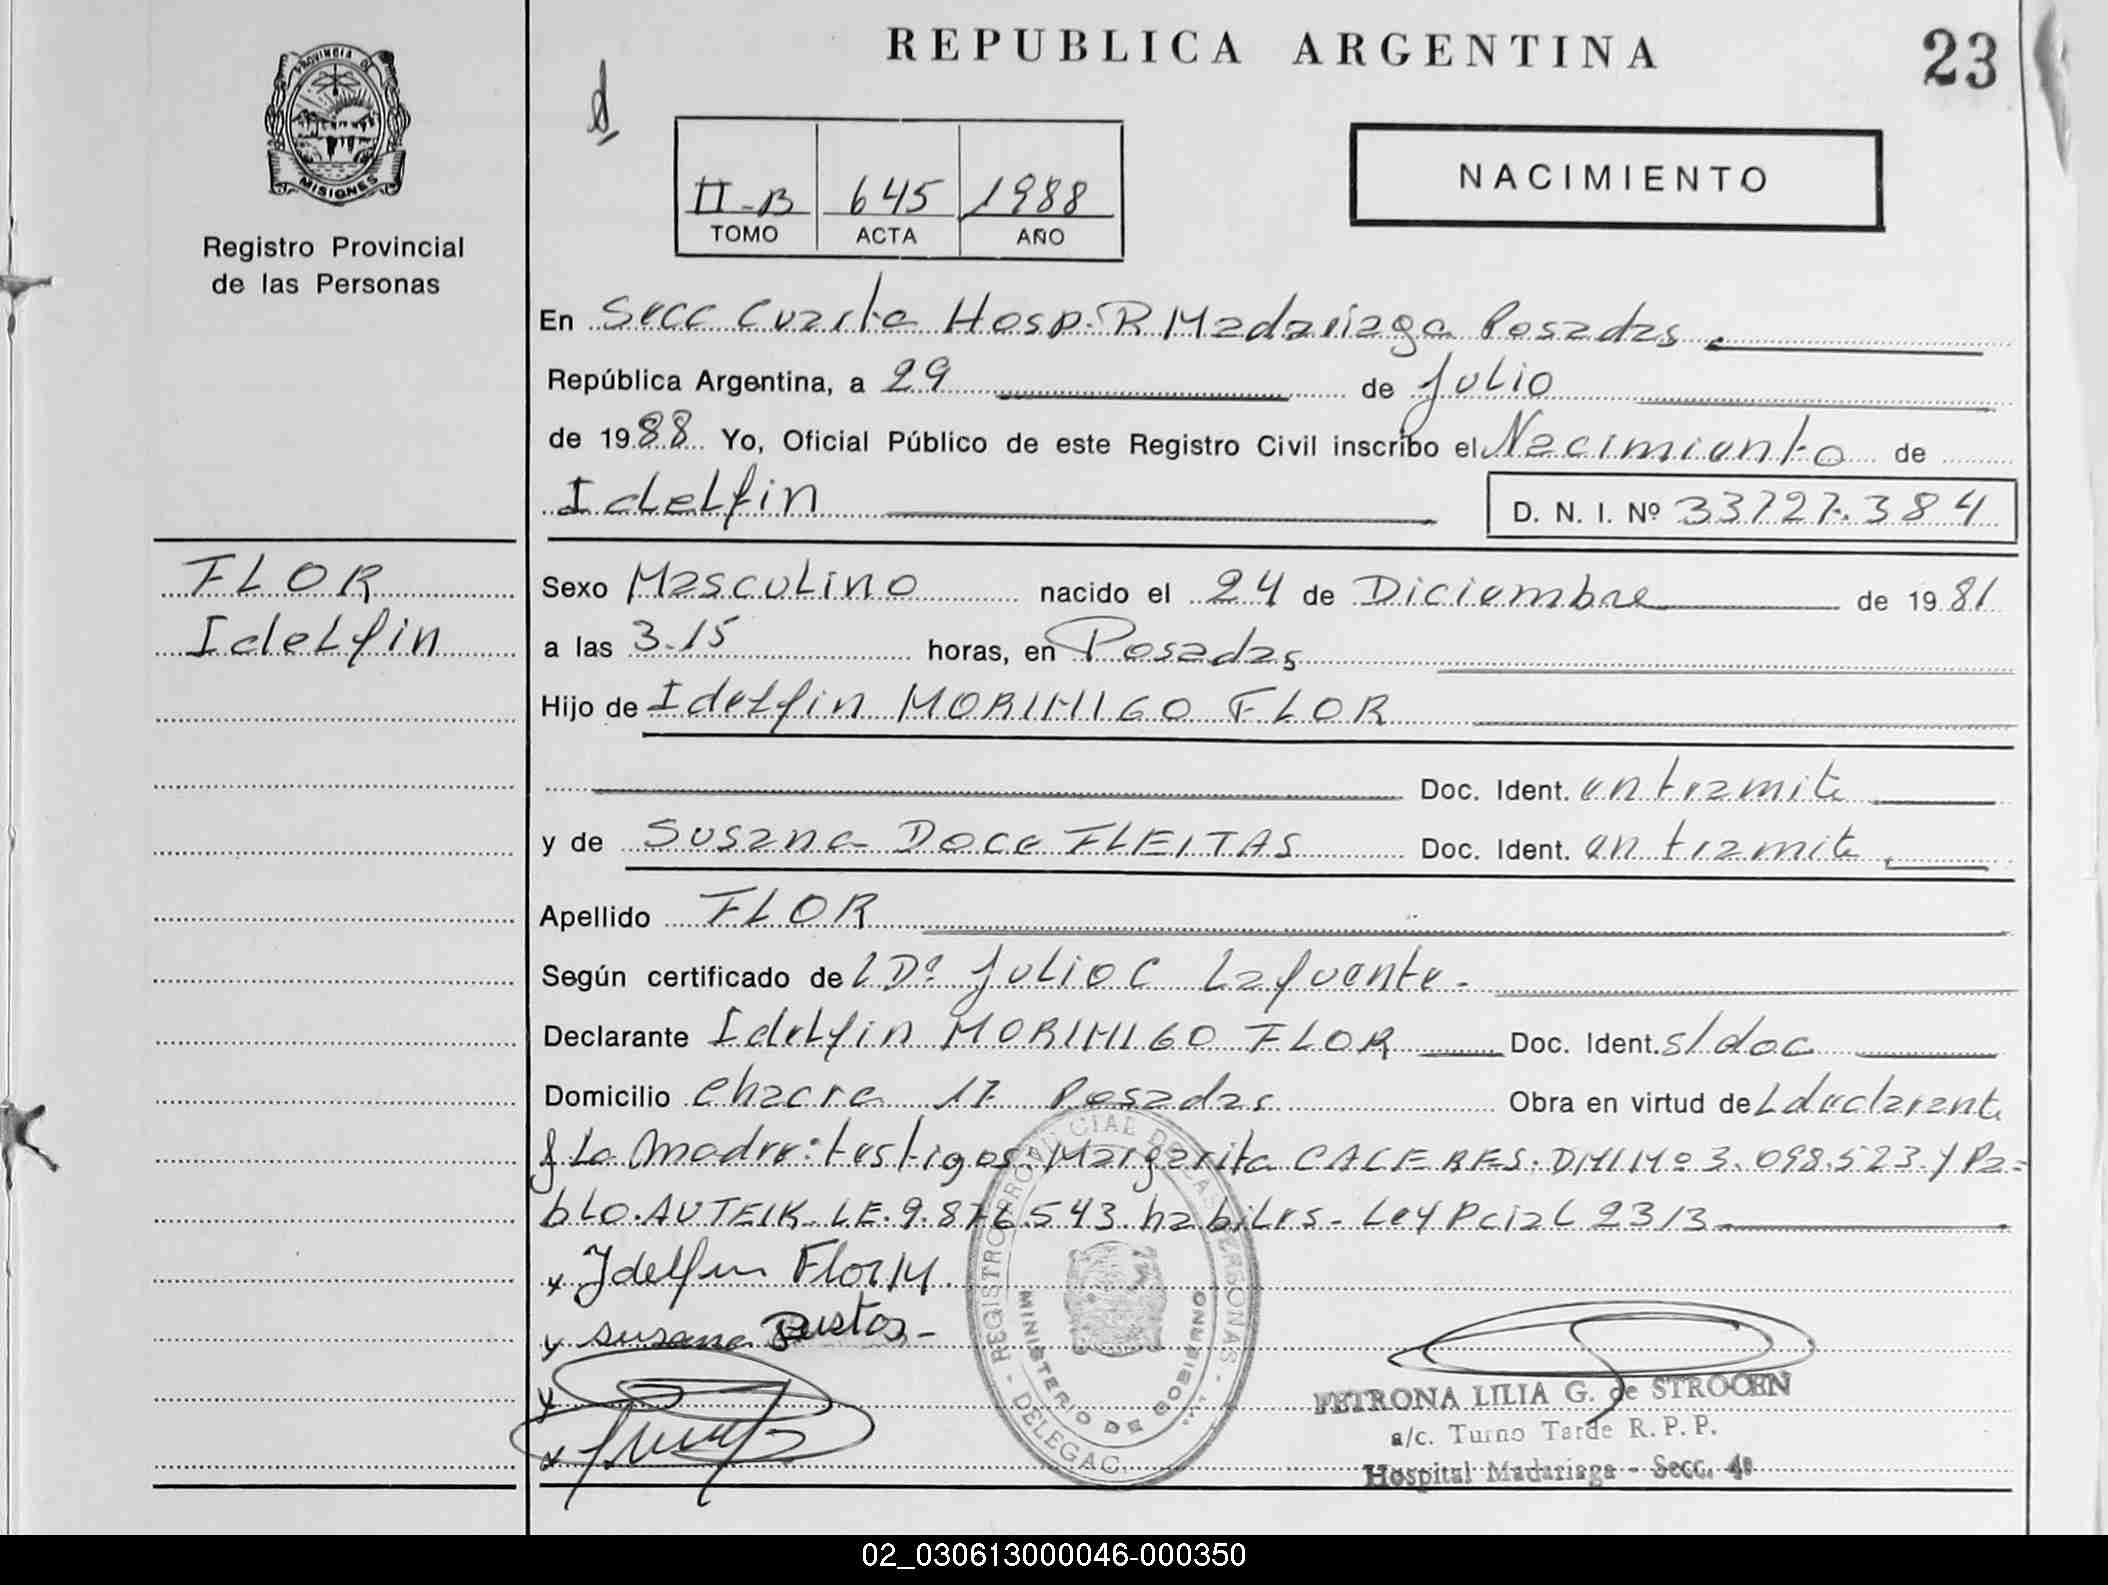 REPUBLICA ARGENTINA
23
PROVINCIA DE
MISIONES
Registro Provincial
de las Personas
II-B 645 1988
TOMO ACTA AÑO
NACIMIENTO
En Secc Cuarta Hosp. R Madariaga Posadas.
República Argentina, a 29 de Julio
de 1988 Yo, Oficial Público de este Registro Civil inscribo el Nacimiento de
Idelfin
D. N. I. Nº 33727.384
FLOR
Idelfin
Sexo Masculino nacido el 24 de Diciembre de 1981
a las 3.15 horas, en Posadas
Hijo de Idelfin MORIMIGO FLOR
Doc. Ident. en tramite
y de Susana Doce FLEITAS Doc. Ident. en tramite.
Apellido FLOR
Según certificado de l Dº Julio C Lafuente.
Declarante Idelfin MORIMIGO FLOR Doc. Ident. s/doc
Domicilio Chacra 17 Posadas Obra en virtud de L declarante
y La Madre: testigos: Margarita CACERES. DNI Nº 3.098.523. y Pa=
blo. AUTEIK. LE. 9.876.543. habiles. Ley Pcial 2313
x Idelfin Flor M.
y susana
REGISTRO PROVINCIAL DE LAS PERSONAS - DELEGAC.
MINISTERIO DE GOBIERNO
PETRONA LILIA G. de STROCEN
a/c. Turno Tarde R. P. P.
Hospital Madariaga - Secc. 4ª
02_030613000046-000350